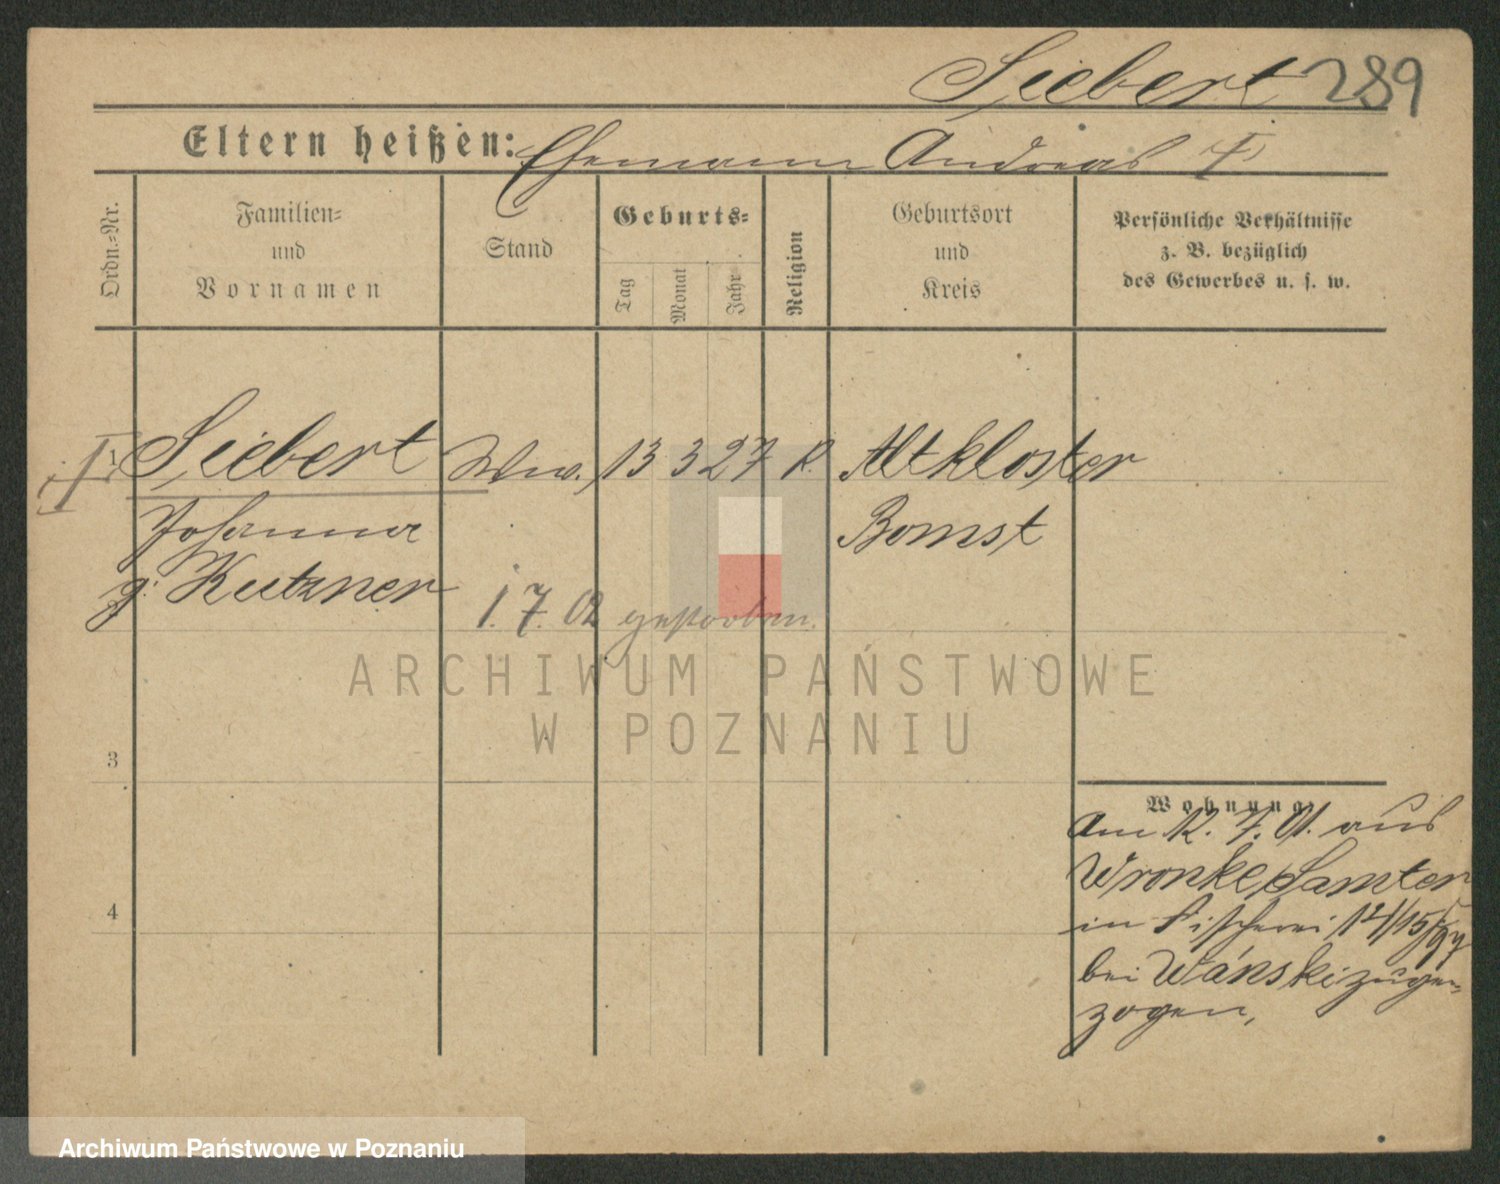 Siebert 289
Eltern heißen: Ehemann Andreas †
Ordn.=Nr.
Familien=
und
Vornamen
Stand
Geburts=
Tag
Monat
Jahr
Religion
Geburtsort
und
Kreis
Persönliche Verhältnisse
z. B. bezüglich
des Gewerbes u. s. w.
† 1 Siebert Ww. 13 3 27 K. Altkloster
Johanna Bomst
g. Kutzner
1. 7. 02 gestorben.
ARCHIWUM PAŃSTWOWE
W POZNANIU
3
4
Wohnung
Am 12. 7. 01. aus
Wronke, Samter
in Fischerei 14/15
bei Wański zuge=
zogen,
Archiwum Państwowe w Poznaniu